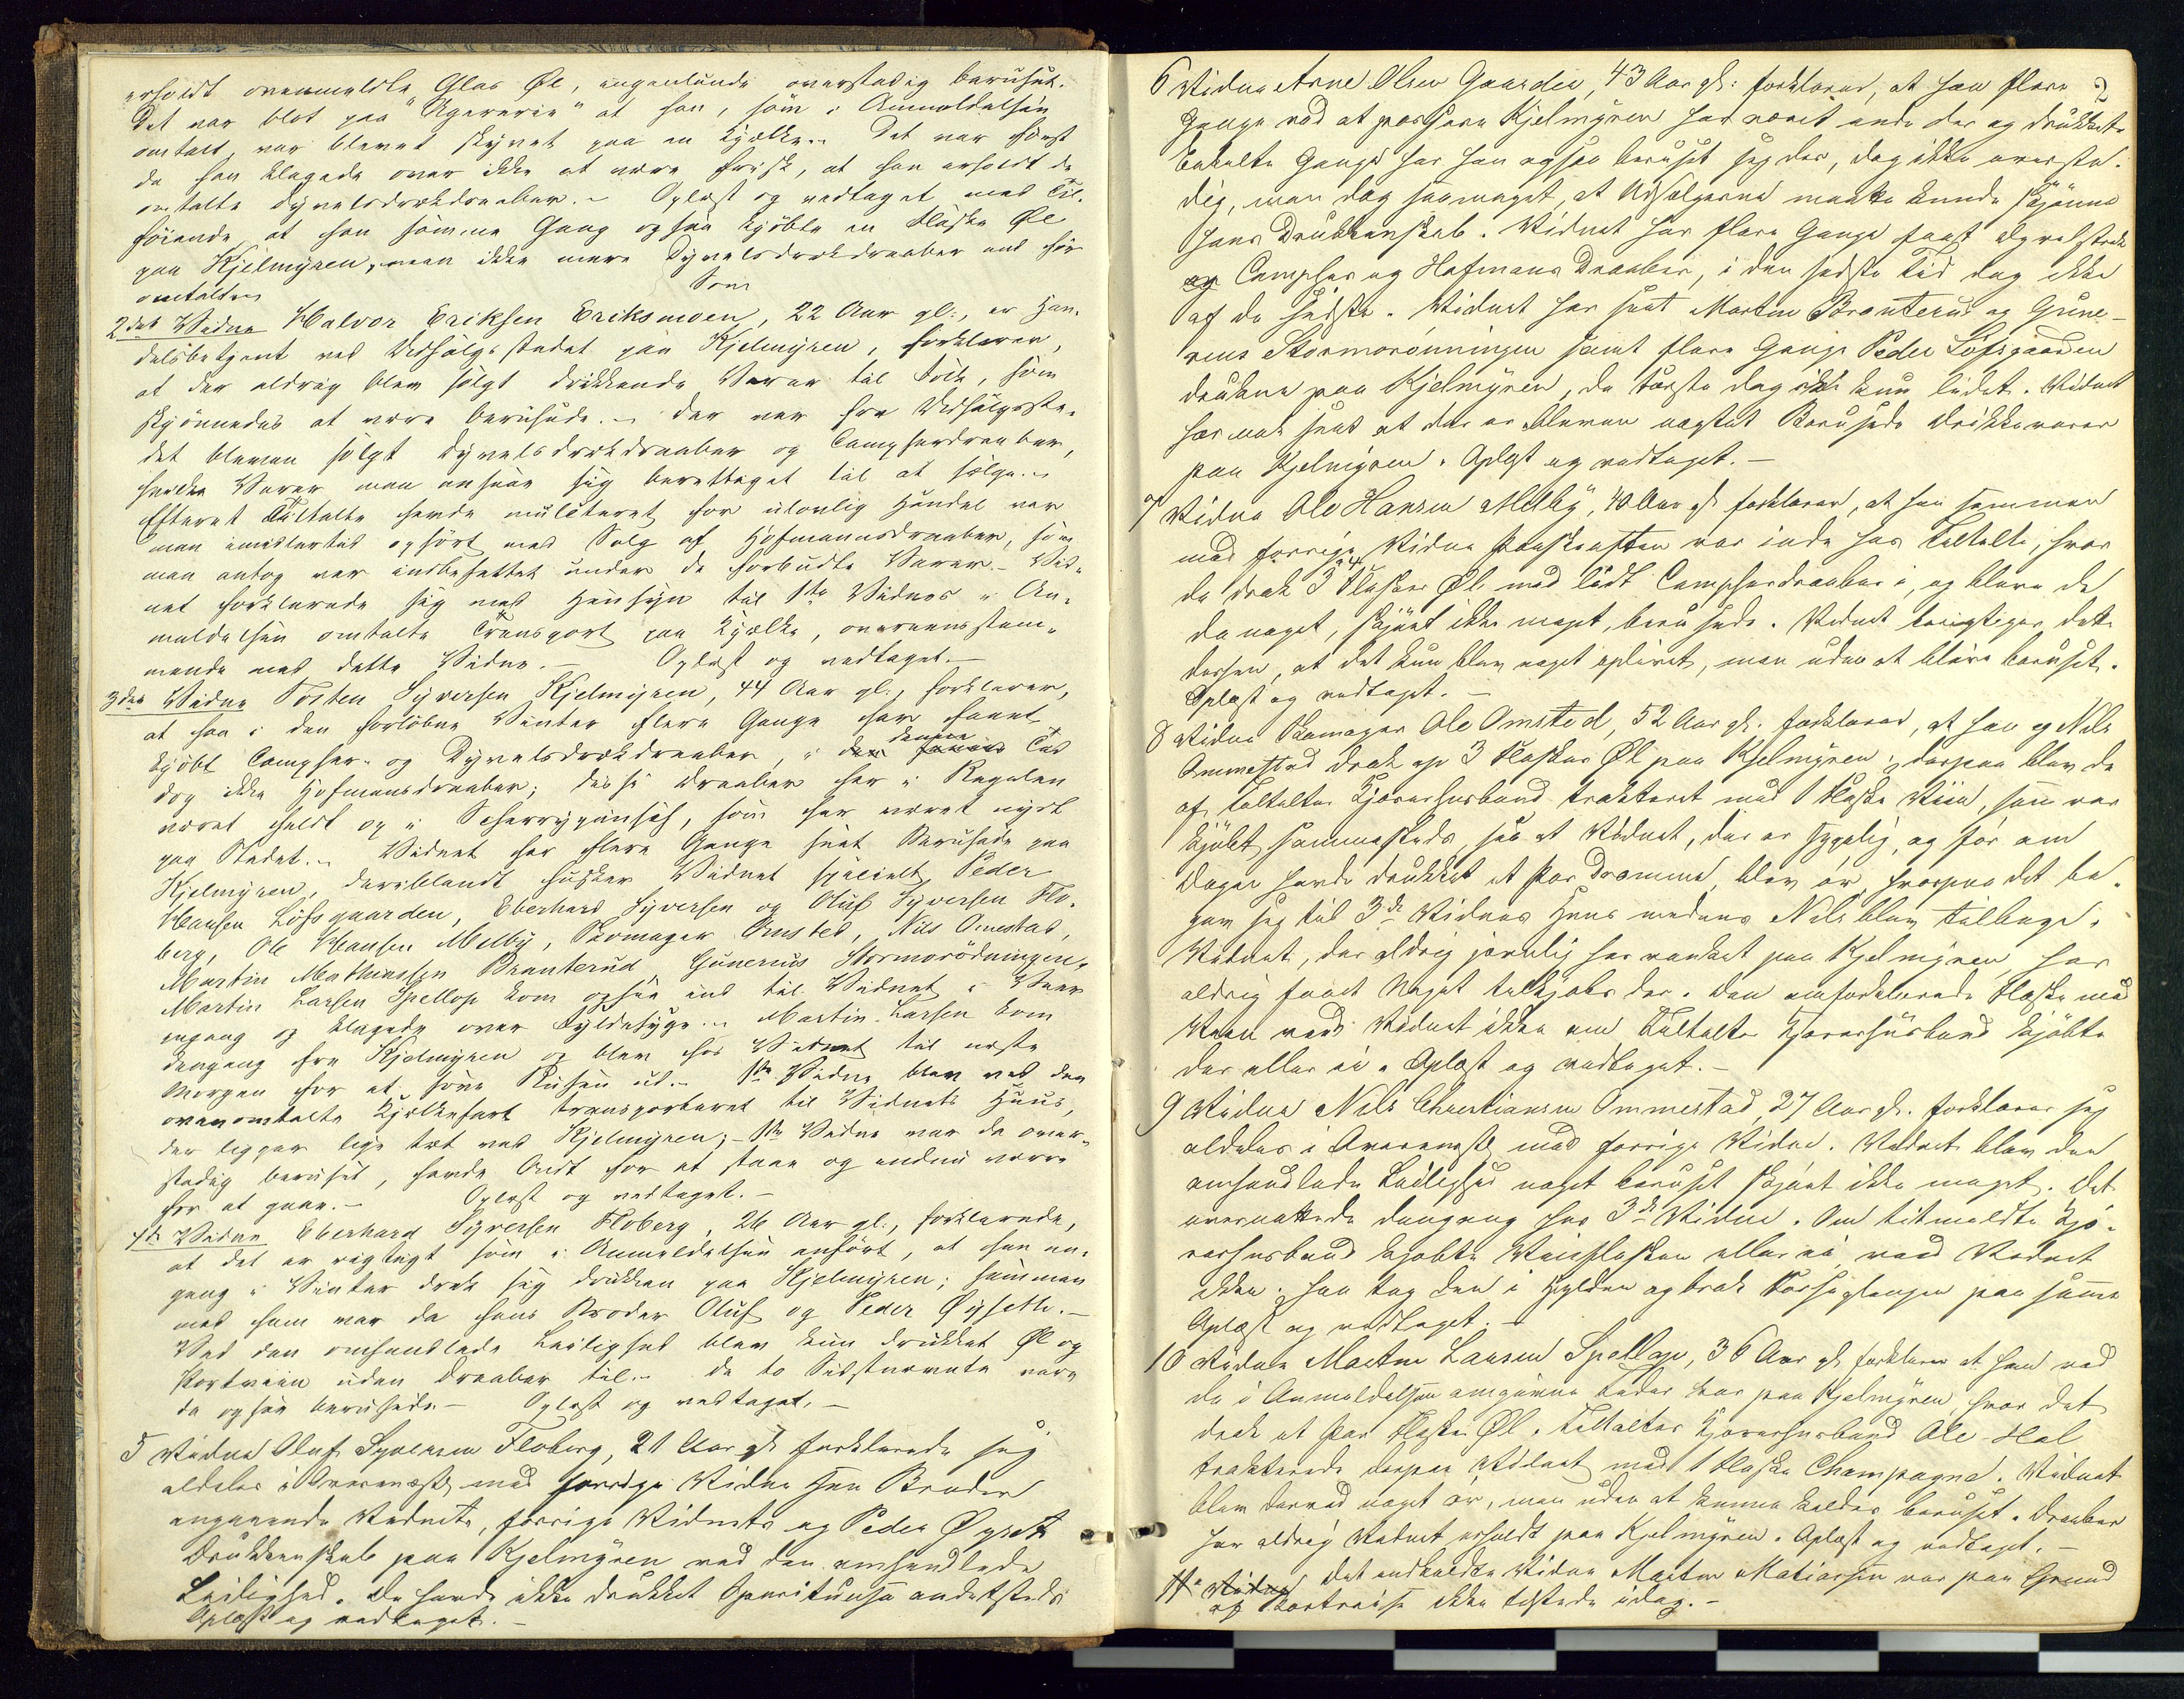 erholdt ovenmeldte Glas Øl, ingenlunde overstadig beruset.
Det var blot paa "Agererie" at han, som i Anmeldelsen
omtalt, var blevet skjøvet paa en Kjælke. Det var først
da han klagede over ikke at være frisk, at han erholdt de
omtalte Dyvelsdrækdraaber. - Oplæst og vedtaget med Til-
føiende at han samme Gang ogsaa kjöbte en Flaske Øl
paa Kjelmyren, men ikke mere Dyvelsdrækdraaber end før
omtalte.
2det Vidne Halvor Eriksen Eriksmoen, 22 Aar gl:, er Han-
delsbetjent ved Udsalgsstedet paa Kjelmyren, forklarer,
at der aldrig blev solgt drikkende Varer til Folk, som
skjönnedes at være berusede. - Der var fra Udsalgsste-
det bleven solgt Dyvelsdrækdraaber og Campherdraaber,
hvilke Varer man ansaa sig berettiget til at sælge. -
Efterat Tiltalte havde mulcteret for ulovlig Handel var
man imidlertid ophört med Salg af Hofmannsdraaber, som
man antog var indbefattet under de forbudte Varer. - Vid-
net forklarede sig med Hensyn til 1ste Vidnes i An-
meldelsen omtalte Transport paa Kjælke, overeensstem-
mende med dette Vidne. - Oplæst og vedtaget. -
3die Vidne Torsten Syversen Kjelmyren, 44 Aar gl:, forklarer,
at han i den forløbne Vinter flere Gange har faaet
kjöbt Campher- og Dyvelsdrækdraaber, i den denne Tid
dog ikke Hofmansdraaber; disse Draaber har i Regelen
været heldt op i Scherrypunsch, som har været nydt
paa Stedet. - Vidnet har flere Gange seet Berusede paa
Kjelmyren, deriblandt husker Vidnet specielt Peder
Hansen Löfsgaarden, Eberhard Syversen og Oluf Syversen Flo-
berg, Ole Hansen Melby, Skomager Omsted, Nils Omestad,
Martin Mathiassen Branterud, Gunerius Stormorödningen,
Martin Larsen Spellop kom ogsaa ind til Vidnet i Vaar
engang og klagede over Fyldesyge. - Martin Larsen kom
dengang fra Kjelmyren og blev hos Vidnet til næste
Morgen for at sove Rusen ud. - 1ste Vidne blev ved den
ovenomtalte Kjælkefart transporteret til Vidnets Huus,
der ligger lige tæt ved Kjelmyren; - 1ste Vidne var da over-
stadig beruset, havde Ondt for at staae og endnu værre
for at gaae. - Oplæst og vedtaget. -
4de Vidne Eberhard Syversen Floberg, 26 Aar gl:, forklarede,
at det er rigtigt som i Anmeldelsen anført, at han en-
gang i Vinter drak sig drukken paa Kjelmyren; sammen
med ham var da hans Broder Oluf og Peder Øisette. -
Ved den omhandlede Leilighed blev kun drukket Øl og
Portviin uden Draaber til. - De to Sidstnævnte vare
da ogsaa berusede. - Oplæst og vedtaget. -
5 Vidne Oluf Syversen Floberg, 21 Aar gl. forklarede sig
aldeles i Overensst. med forrige Vidne hans Broder
angaaende Vidnets, forrige Vidnets og Peder Øyset
Drukkenskab paa Kjelmyren ved den omhandlede
Leilighed. De havde ikke drukket Spirituosa andetsteds.
Oplæst og vedtaget. -
2
6 Vidne Arne Olsen Gaarder, 43 Aar gl: forklarer, at han flere
Gange ved at passere Kjelmyren har været inde der og drukket.
Enkelte Gange har han ogsaa beruset sig der, dog ikke oversta-
dig, men dog saameget, at Udsælgerne maatte kunde skjönne
hans Drukkenskab. Vidnet har flere Gange faaet Dyvelsdræk
og Campher og Hofmans Draaber, i den sidste Tid dog ikke
af de sidste. Vidnet har seet Martin Branterud og Gune-
rius Stormorönningen samt flere Gange Peder Lofsgaarden
drukne paa Kjelmyren, de første dog kun lidet. Vidnet
har seet at der er bleven nægtet Berusede Drikkevarer
paa Kjelmyren. Oplæst og vedtaget. -
7 Vidne Ole Hansen Melby, 40 Aar gl forklarer, at han sammen
med forrige Vidne Paaskeaften var inde hos Tiltalte, hvor
de drak 3 Flasker Øl med lidt Campherdraaber i, og bleve de
da noget, skjönt ikke meget, berusede. Vidnet berigtiger dette
derhen, at det kun blev noget oplivet, men uden at blive beruset.
Oplæst og vedtaget. -
8 Vidne Skomager Ole Omsted, 52 Aar gl. forklarer, at han og Nils
Ommestad drak op 3 Flasker Øl paa Kjelmyren; derpaa blev de
af Tiltaltes Gjæversbusband trakteret med 1 Flaske Viin, som var
kjöbt sammesteds, saa at Vidnet, der er sygelig, og før om
Dagen havde drukket et Par Dramme, blev ör, hvorpaa det be-
gav sig til 3de Vidnes Huus medens Nils blev tilbage.
Vidnet, der aldrig jævnlig har vanket paa Kjelmyren, har
aldrig faaet Noget tilkjøbs der. Den omforklarede Flaske med
Viin veed Vidnet ikke om Tiltaltes kjöbte
der eller ei. Oplæst og vedtaget. -
9 Vidne Nils Christiansen Ommestad 27 Aar gl. forklarer sig
aldeles i Overensst. med forrige Vidne. Vidnet blev den
omhandlede Leilighed noget beruset skjønt ikke meget. Det
overnattede dengang hos 3de Vidne. Om titmeldte
kjøbte Viinflasken eller ei, veed Vidnet
ikke; han tog den i Hylden og brak Forseglingen paa samme
Oplæst og vedtaget. -
10 Vidne Martin Larsen Spellop, 36 Aar gl. forklarer at han ved
de i Anmeldelsen omgivne Tider var paa Kjelmyren, hvor det
drak et Par Flasker Øl. Tiltaltes Ole Hol
trakterede derpaa Vidnet med 1 Flaske Champagne. Vidnet
blev derved noget ör, men uden at kunne kaldes beruset. Draaber
har aldrig Vidnet erholdt paa Kjelmyren. Oplæst og vedtaget. -
11te Vidne Det indkaldte Vidne Martin Matiassen var paa Grund
af Bortreise ikke tilstede idag. -